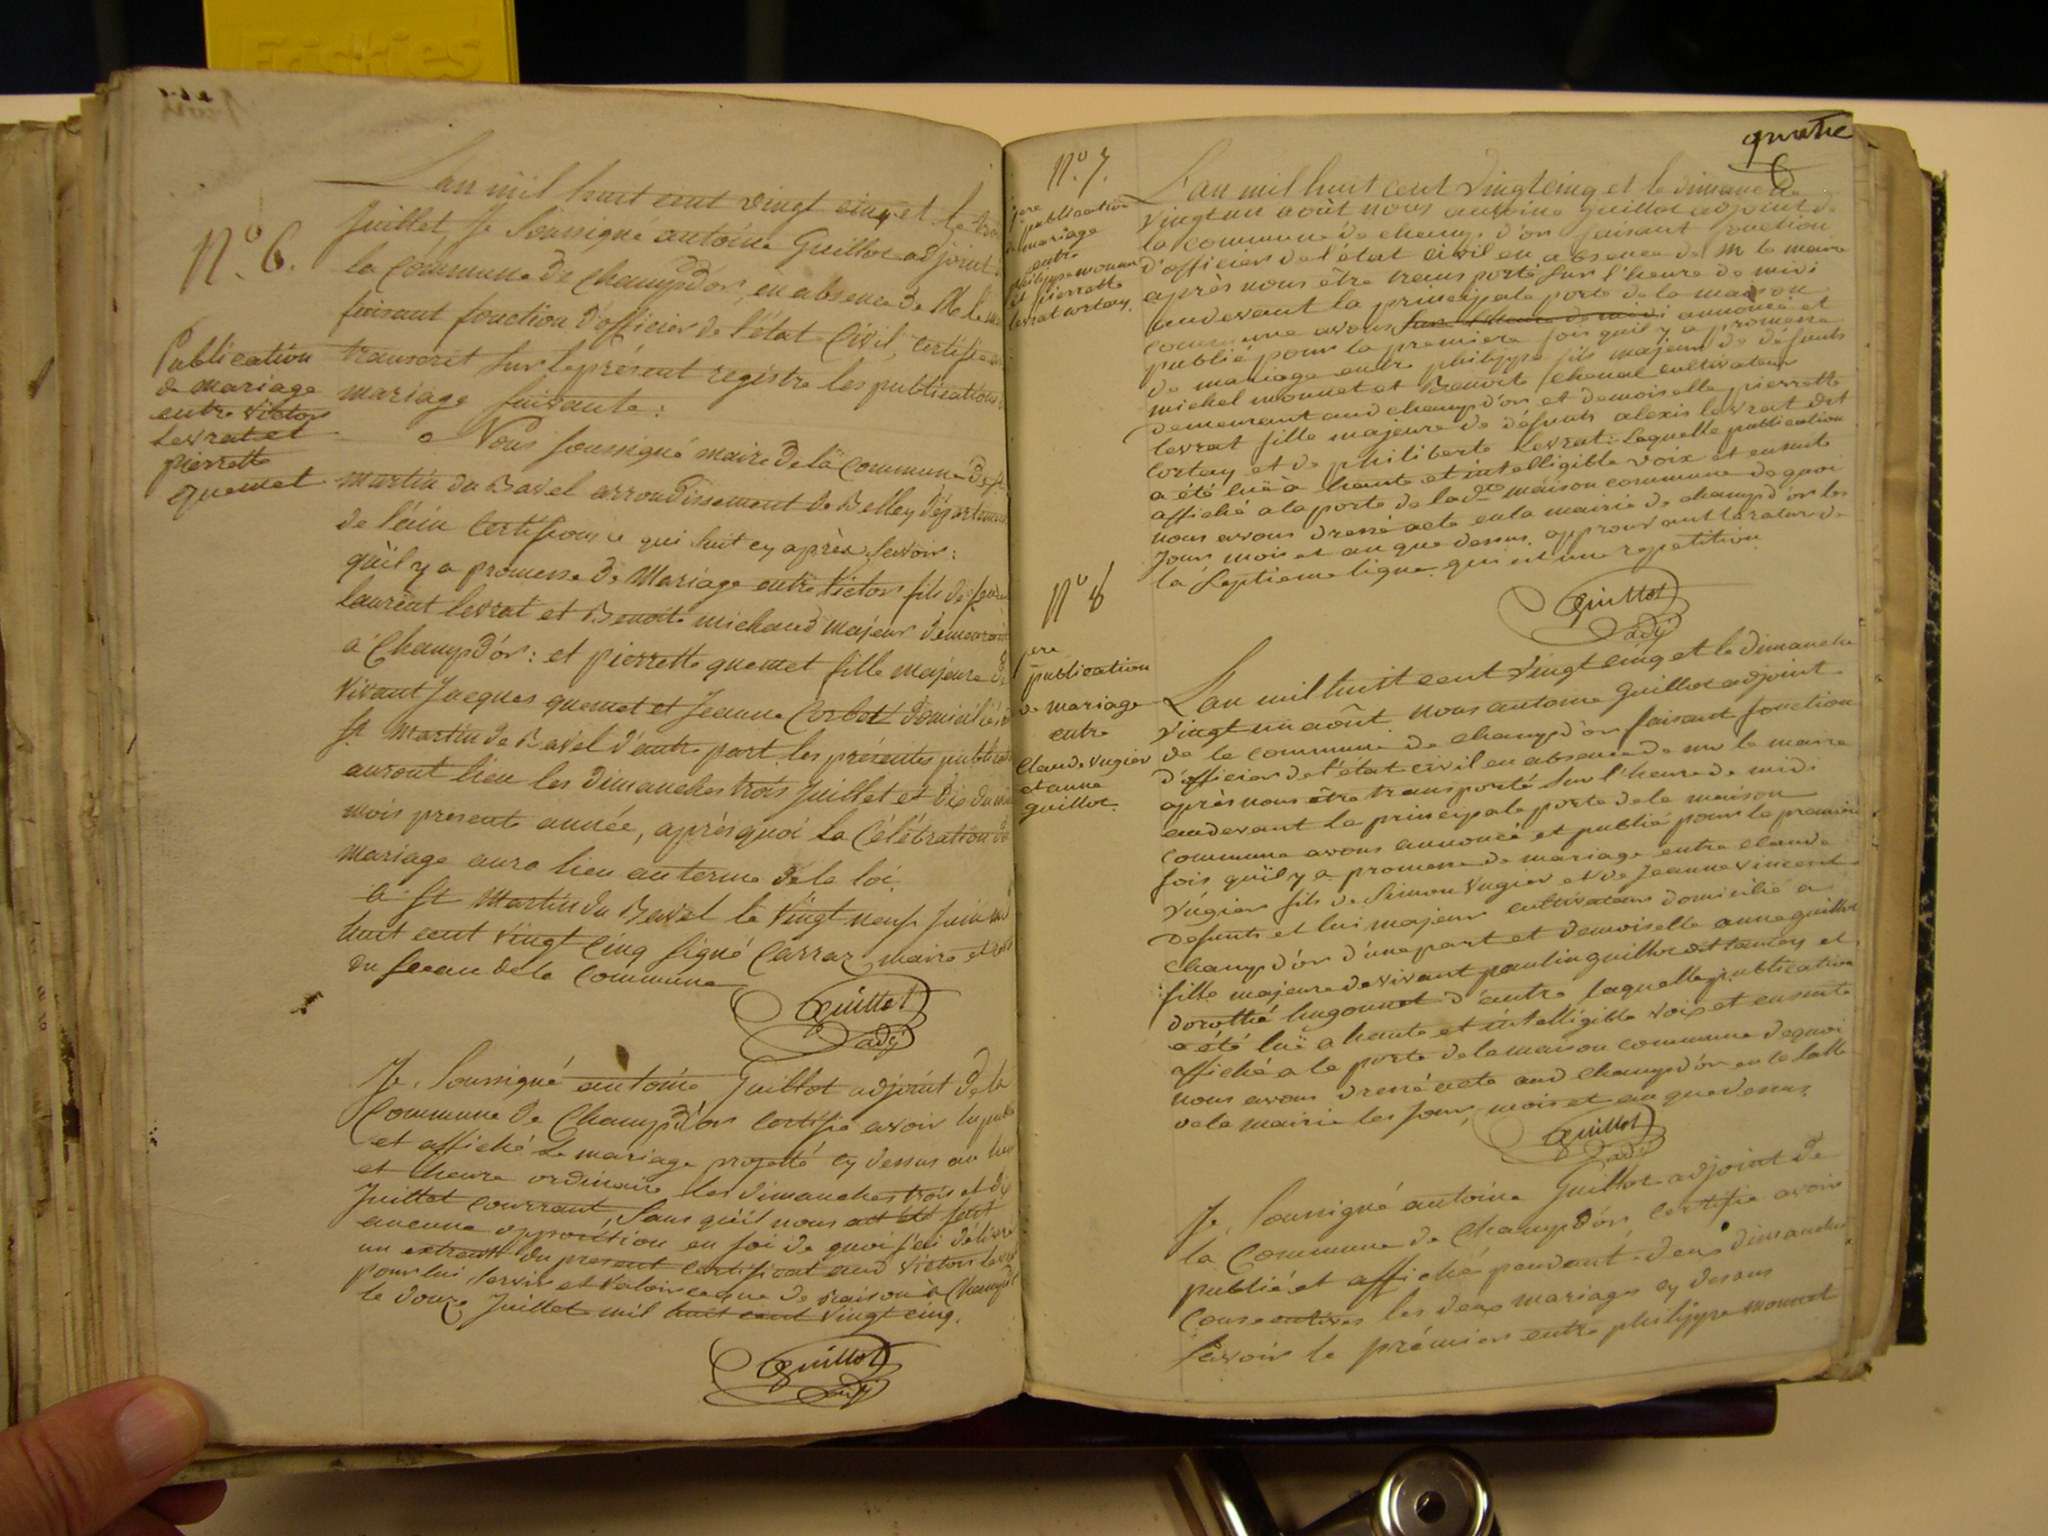 Friskies
N.º 6.
Publication
de mariage
entre victor
Levrat et
pierrette
quemet
L'an mil huit cent vingt cinq et le
Juillet Je Soussigné antoine Guillot adjoint
la Commune de Champd'or, en absence de M. le
faisant fonction d'officier de l'état Civil, certifie
transcrit sur le présent registre les publications
mariage suivante :
Nous soussigné maire de la commune de
martin du Bavel arrondissement de Belley département
de l'ain Certifions ce qui suit cy après, savoir :
qu'il y a promesse de Mariage entre Victor fils de
laurent levrat et Benoite michaud majeur demeurant
à Champd'or : et pierrette quemet fille majeure de
vivant Jacques quemet et Jeanne Corbet domiciliés
st. Martin de Bavel d'autre part, les présentes
auront lieu les dimanches trois Juillet et dix du
mois presente année, après quoi la Célébration
mariage aura lieu au terme de la loi.
à st Martin du Bavel le vingt neuf Juin
huit cent vingt cinq signé Carraz maire et
du sceau de la Commune
Guillot
adj
Je, Soussigné antoine Guillot adjoint de la
Commune de Champd'or Certifie avoir
et affiché le mariage projetté cy dessus au
et heure ordinaire les dimanches trois et
Juillet courrant, sans qu'il nous
aucune opposition en foi de quoi j'ai délivré
un extrait du present certificat aud Victor
pour lui servir et valoir ce que de raison à
le douze Juillet mil huit cent vingt cinq.
Guillot
adj
quatre
N.º 7.
1ere
publication
de mariage
entre
philippe monnet
et pierrette
levrat cortey.
L'an mil huit cent vingt cinq et le dimanche
vingt un août nous antoine guillot adjoint de
la commune de champ. d'or faisant fonction
d'officier de l'état civil en absence de Mr le maire
après nous être transporté sur l'heure de midi
au devant la principale porte de la maison
commune avons sur l'heure de midi annoncé et
publié pour la premiere fois qu'il y a promesse
de mariage entre philippe fils majeur de défunts
michel monnet et Benoite chenal cultivateur
demeurant aud champd'or et demoiselle pierrette
levrat fille majeure de défunts alexis levrat dit
Cortey et de philiberte levrat : laquelle publication
a été luë à haute et intelligible voix et ensuite
affiché a la porte de la dte maison commune de quoi
nous avons dressé acte en la mairie de champd'or les
Jour mois et an que dessus. approuvant la rature de
la septieme ligne qui est une repetition
Guillot
adj
N.º 8
1ere
publication
de mariage
entre
Claude Vugier
et anne
guillot.
L'an mil huit cent vingt cinq et le dimanche
vingt un août. Nous antoine Guillot adjoint
de la commune de champd'or faisant fonction
d'officier de l'état civil en absence de mr le maire
après nous être transporté sur l'heure de midi
audevant la principale porte de la maison
commune avons annoncé et publié pour la premiere
fois qu'il y a promesse de mariage entre claude
Vugier fils de Simon Vugier et de Jeanne Vincent
defunts et lui majeur cultivateur domicilié a
champd'or d'une part et demoiselle anne guillot
fille majeure de vivant paulin guillot dit tancey et
dorothé hugonnet d'autre laquelle publication
a été luë a haute et intelligible voix et ensuite
affiché a la porte de la maison commune dequoi
nous avons dressé acte aud Champd'or en la salle
de la mairie les Jour, mois et an que dessus,
Guillot
adj
Je, Soussigné antoine Guillot adjoint de
la Commune de Champd'or, Certifie avoir
publié et affiché pendant deux dimanches
Consecutives les deux mariages cy dessus
Savoir le prémier entre philippe monnet